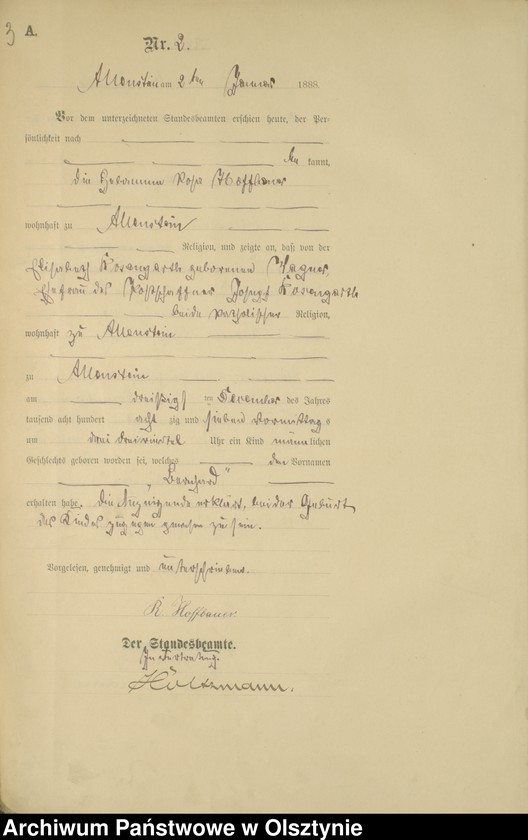 3 A.
Nr. 2.
Allenstein am 2ten Januar 1888.
Vor dem unterzeichneten Standesbeamten erschien heute, der Per-
sönlichkeit nach
be kannt,
die Hebamme Rosa Hoffbauer
wohnhaft zu Allenstein
Religion, und zeigte an, daß von der
Elisabeth Rosengarth geborenen Wagner,
Ehefrau des Postschaffner Joseph Rosengarth
beide katholischer Religion,
wohnhaft zu Allenstein
zu Allenstein
am dreißigsten December des Jahres
tausend acht hundert acht zig und sieben Vormittags
um drei dreiviertel Uhr ein Kind männlichen
Geschlechts geboren worden sei, welches den Vornamen
„Bernhard“
erhalten habe. Die Anzeigende erklärt, bei der Geburt
des Kindes zugegen gewesen zu sein.
Vorgelesen, genehmigt und unterschrieben.
R. Hoffbauer.
Der Standesbeamte.
In Vertretung.
Holtzmann.
Archiwum Państwowe w Olsztynie